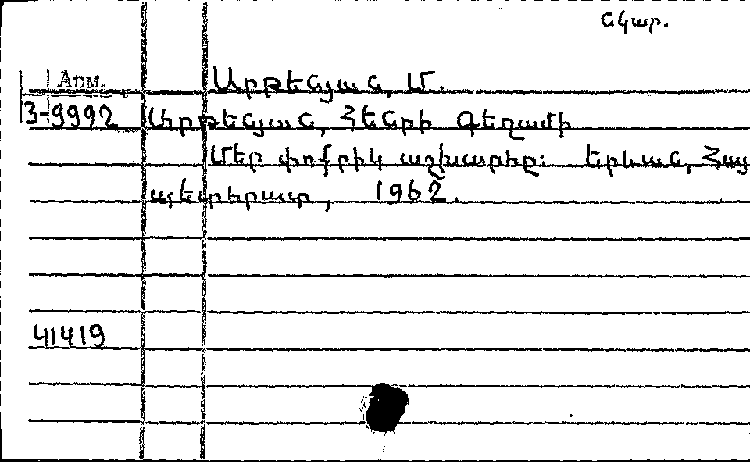 նկար.
Арм.
Արթենյան, Մ.
3-9992 Արթենյան, Հենրի Գեղամի
Մեր փոքրիկ աշխարհը: Երևան, Հայ
պետհրատ, 1962.
41419